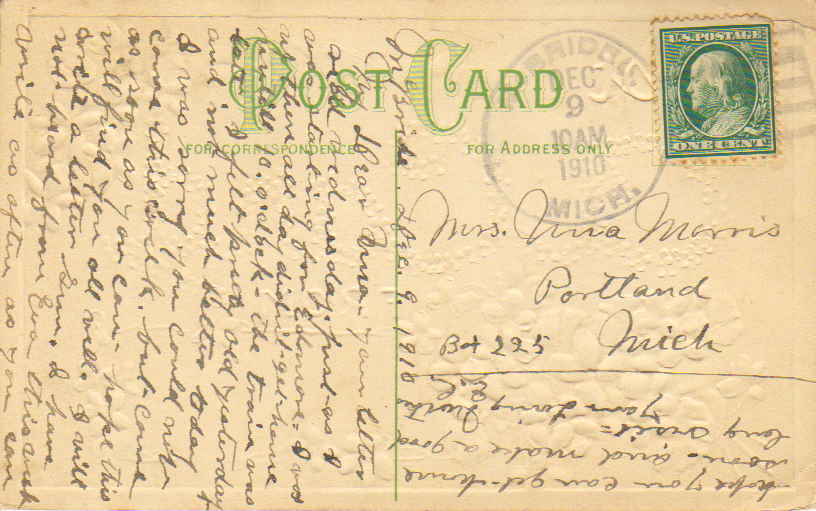 POST CARD
FOR CORRESPONDENCE
FOR ADDRESS ONLY
U.S. POSTAGE
ONE CENT
McBRIDES
DEC
9
10 AM
1910
MICH.
Mrs. Nina Morris
Portland
Mich
Box 225
McBride. Dec. 9. 1910
My Dear Nina - your letter
rec'd wednesday. just as I
was starting for Edmore - I was
up there all day didn't get home
until 10. o'clock - the train was
late. I felt pretty old yesterday
and not much better today
I was sorry you could not
come this week. but come
as soon as you can - hope this
will find you all well. I will
write a letter Sun. I have
not heard from Eva this week
write as often as you can
hope you can get home
soon - and make a good
long visit =
your loving Mother